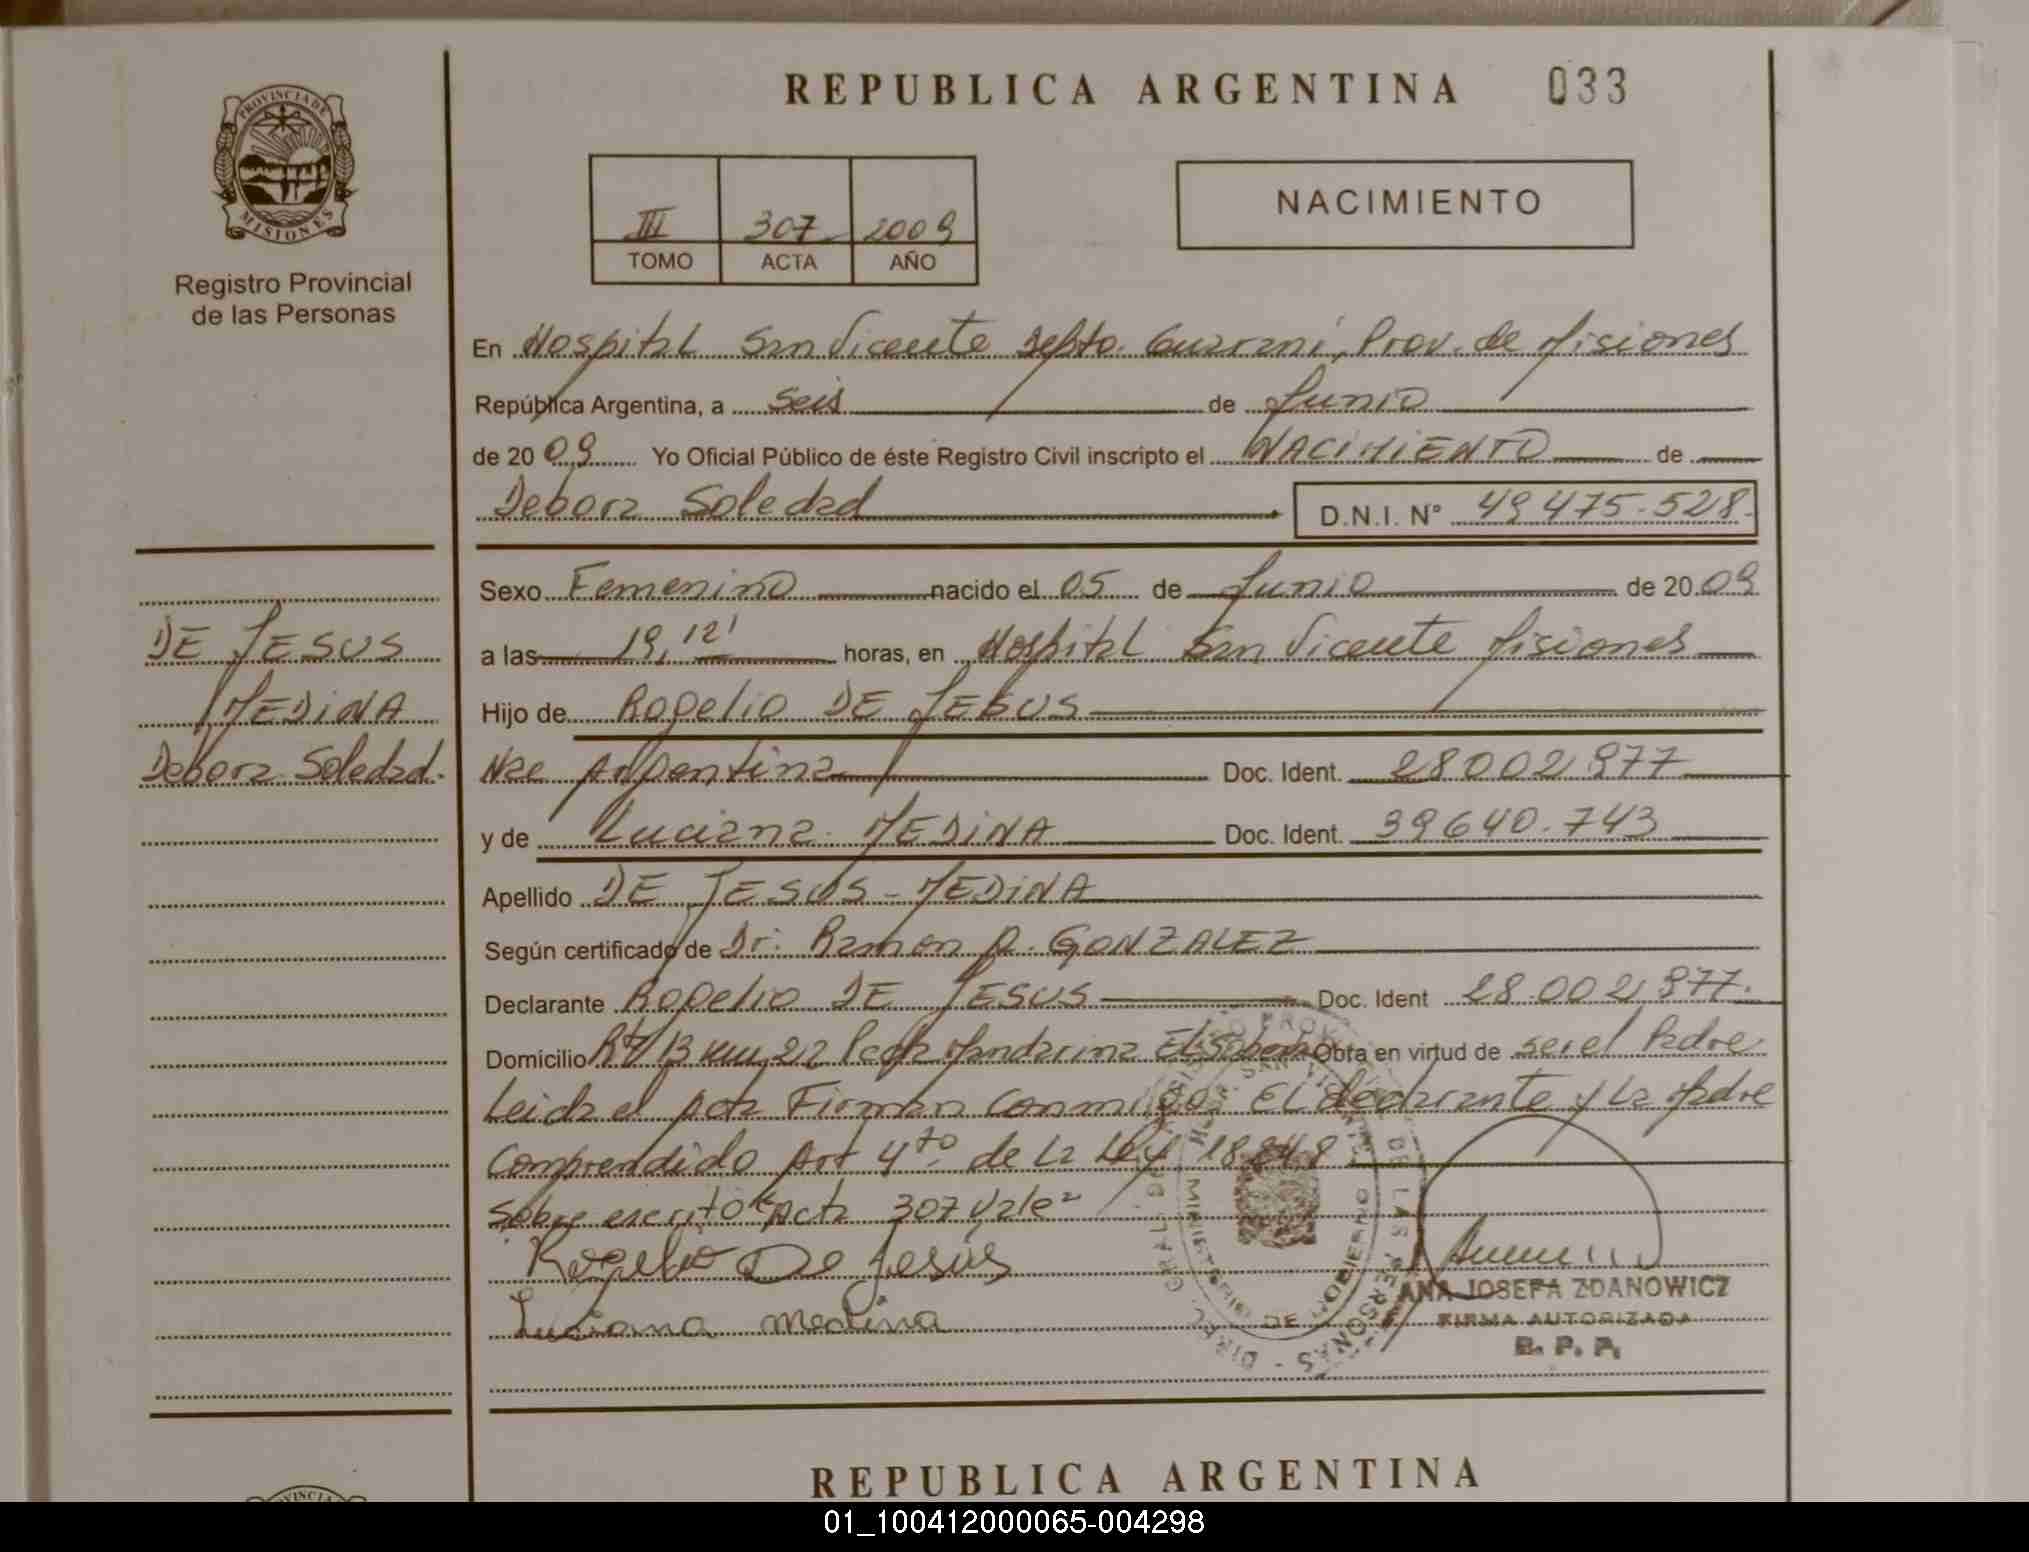 REPUBLICA ARGENTINA 033
PROVINCIA DE
MISIONES
Registro Provincial
de las Personas
III 307 2009
TOMO ACTA AÑO
NACIMIENTO
En Hospital San Vicente Depto. Guarani, Prov. de Misiones
República Argentina, a seis de Junio
de 2009 Yo Oficial Público de éste Registro Civil inscripto el NACIMIENTO de
Debora Soledad D.N.I. N° 49475.528.
Sexo Femenino nacido el 05 de Junio de 2009
a las 19,12' horas, en Hospital San Vicente Misiones
Hijo de Rogelio DE JESUS
Nac Argentina Doc. Ident. 28002977
y de Luciana MEDINA Doc. Ident. 39640.743
Apellido DE JESUS-MEDINA
Según certificado de Dr. Ramon A. GONZALEZ
Declarante Rogelio DE JESUS Doc. Ident 28.002977.
Domicilio Rta 13 km 22 Pcja Mandarina El Soberbio Obra en virtud de ser el Padre
Leida el Acta Firman conmigo El declarante y La Madre
Comprendido Art 4to de La Ley 18248
Sobre escrito Acta 307 Vale
Rogelio De Jesús
Luciana medina
DE JESUS
MEDINA
Debora Soledad.
ANA JOSEFA ZDANOWICZ
FIRMA AUTORIZADA
R. P. P.
REPUBLICA ARGENTINA
01_100412000065-004298